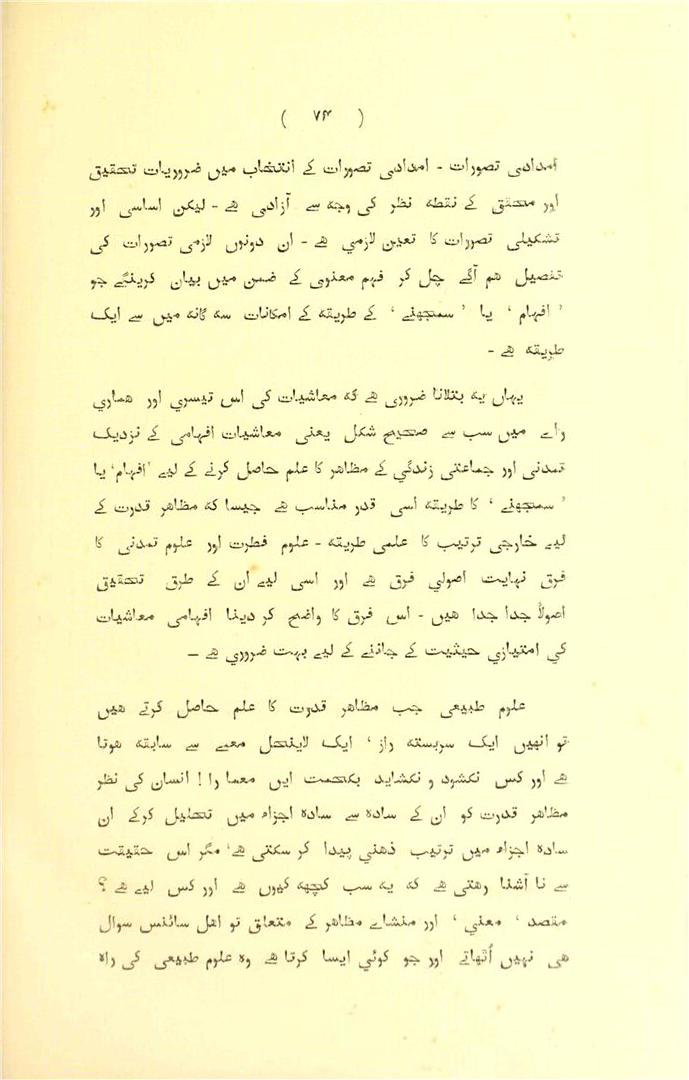 ( ۷۴ )
امدادی تصورات - امدادی تصورات کے انتخاب میں ضروریات تحقیق
اور محقق کے نقطه نظر کی وجه سے آزادی هے - لیکن اساسی اور
تشکیلی تصورات کا تعین لازمي هے - ان دونوں لازمی تصورات کی
تفصیل هم آگے چل کر فہم معنوی کے ضمن میں بیان کرینگے جو
' افہام ' یا ' سمجھنے ' کے طریقه کے امکانات سه گانه میں سے ایک
طریقه هے -
یہاں یه بتلانا ضروری هے که معاشیات کی اس تیسري اور هماري
راے میں سب سے صحیح شکل یعنی معاشیات افہامی کے نزدیک
تمدنی اور جماعتی زندگي کے مظاهر کا علم حاصل کرنے کے لیے 'افہام' یا
' سمجھنے ' کا طریقه اسی قدر مناسب هے جیسا که مظاهر قدرت کے
لیے خارجی ترتیب کا علمی طریقه - علوم فطرت اور علوم تمدنی کا
فرق نہایت اصولي فرق هے اور اسی لیے ان کے طرق تحقیق
اصولاً جدا جدا هیں - اس فرق کا واضح کر دینا افہامی معاشیات
کي امتیازي حیثیت کے جاننے کے لیے بہت ضروري هے —
علوم طبیعی جب مظاهر قدرت کا علم حاصل کرتے هیں
تو انھیں ایک سربسته راز ' ایک لاینحل معمے سے سابقه هوتا
هے اور کس نکشود و نکشاید بحکمت ایں معما را ! انسان کی نظر
مظاهر قدرت کو ان کے ساده سے ساده اجزاء میں تحلیل کرکے ان
ساده اجزاء میں ترتیب ذهني پیدا کر سکتی هے' مگر اس حقیقت
سے نا آشنا رهتی هے که یه سب کچھه کیوں هے اور کس لیے هے ؟
مقصد ' معني ' اور منشاے مظاهر کے متعلق تو اهل سائنس سوال
هی نہیں اُٹھاتے اور جو کوئي ایسا کرتا هے وه علوم طبیعی کی راه